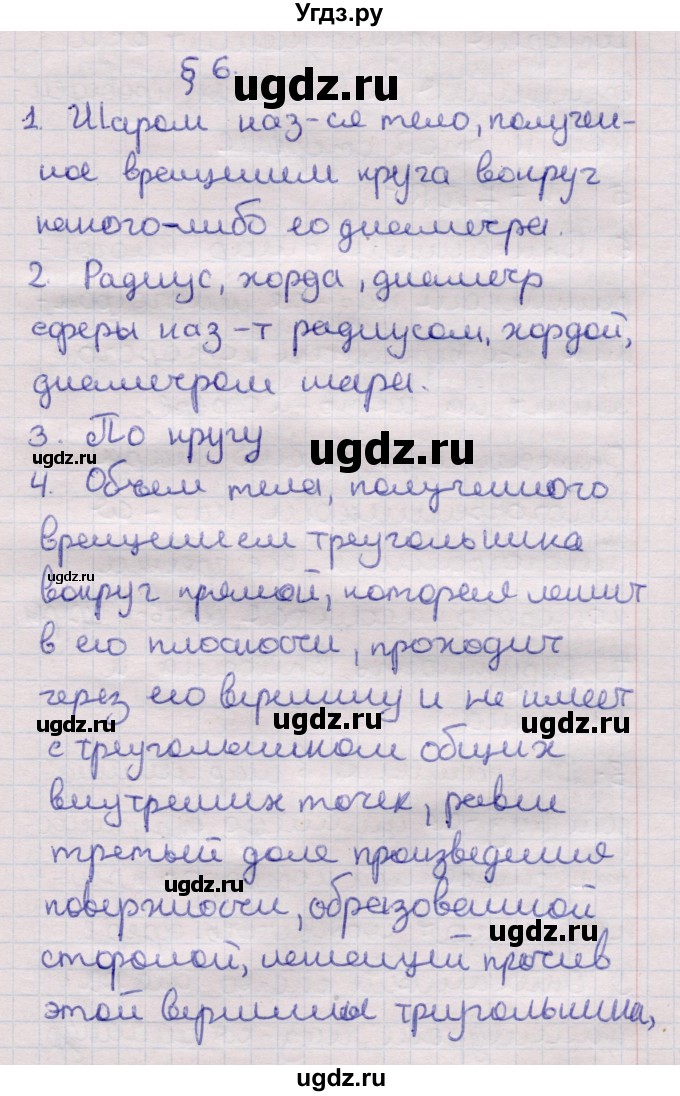 Угдз.ру
§ 6.
ugdz.ru
1. Шаром наз-ся тело, получен-
ное вращением круга вокруг
какого-либо его диаметра.
2. Радиус, хорда, диаметр
сферы наз-т радиусом, хордой,
диаметром шара.
3. По кругу
ugdz.ru
ugdz.ru
4. Объем тела, полученного
вращением треугольника
ugdz.ru
вокруг прямой, которая лежит
в его плоскости, проходит
через его вершину и не имеет
ugdz.ru
ugdz.ru
ugdz.ru
с треугольником общих
внутренних точек, равен
третьей доле произведения
ugdz.ru
поверхности, образованной
ugdz.ru
стороной, лежащей против
этой вершины триугольника,
ugdz.ru